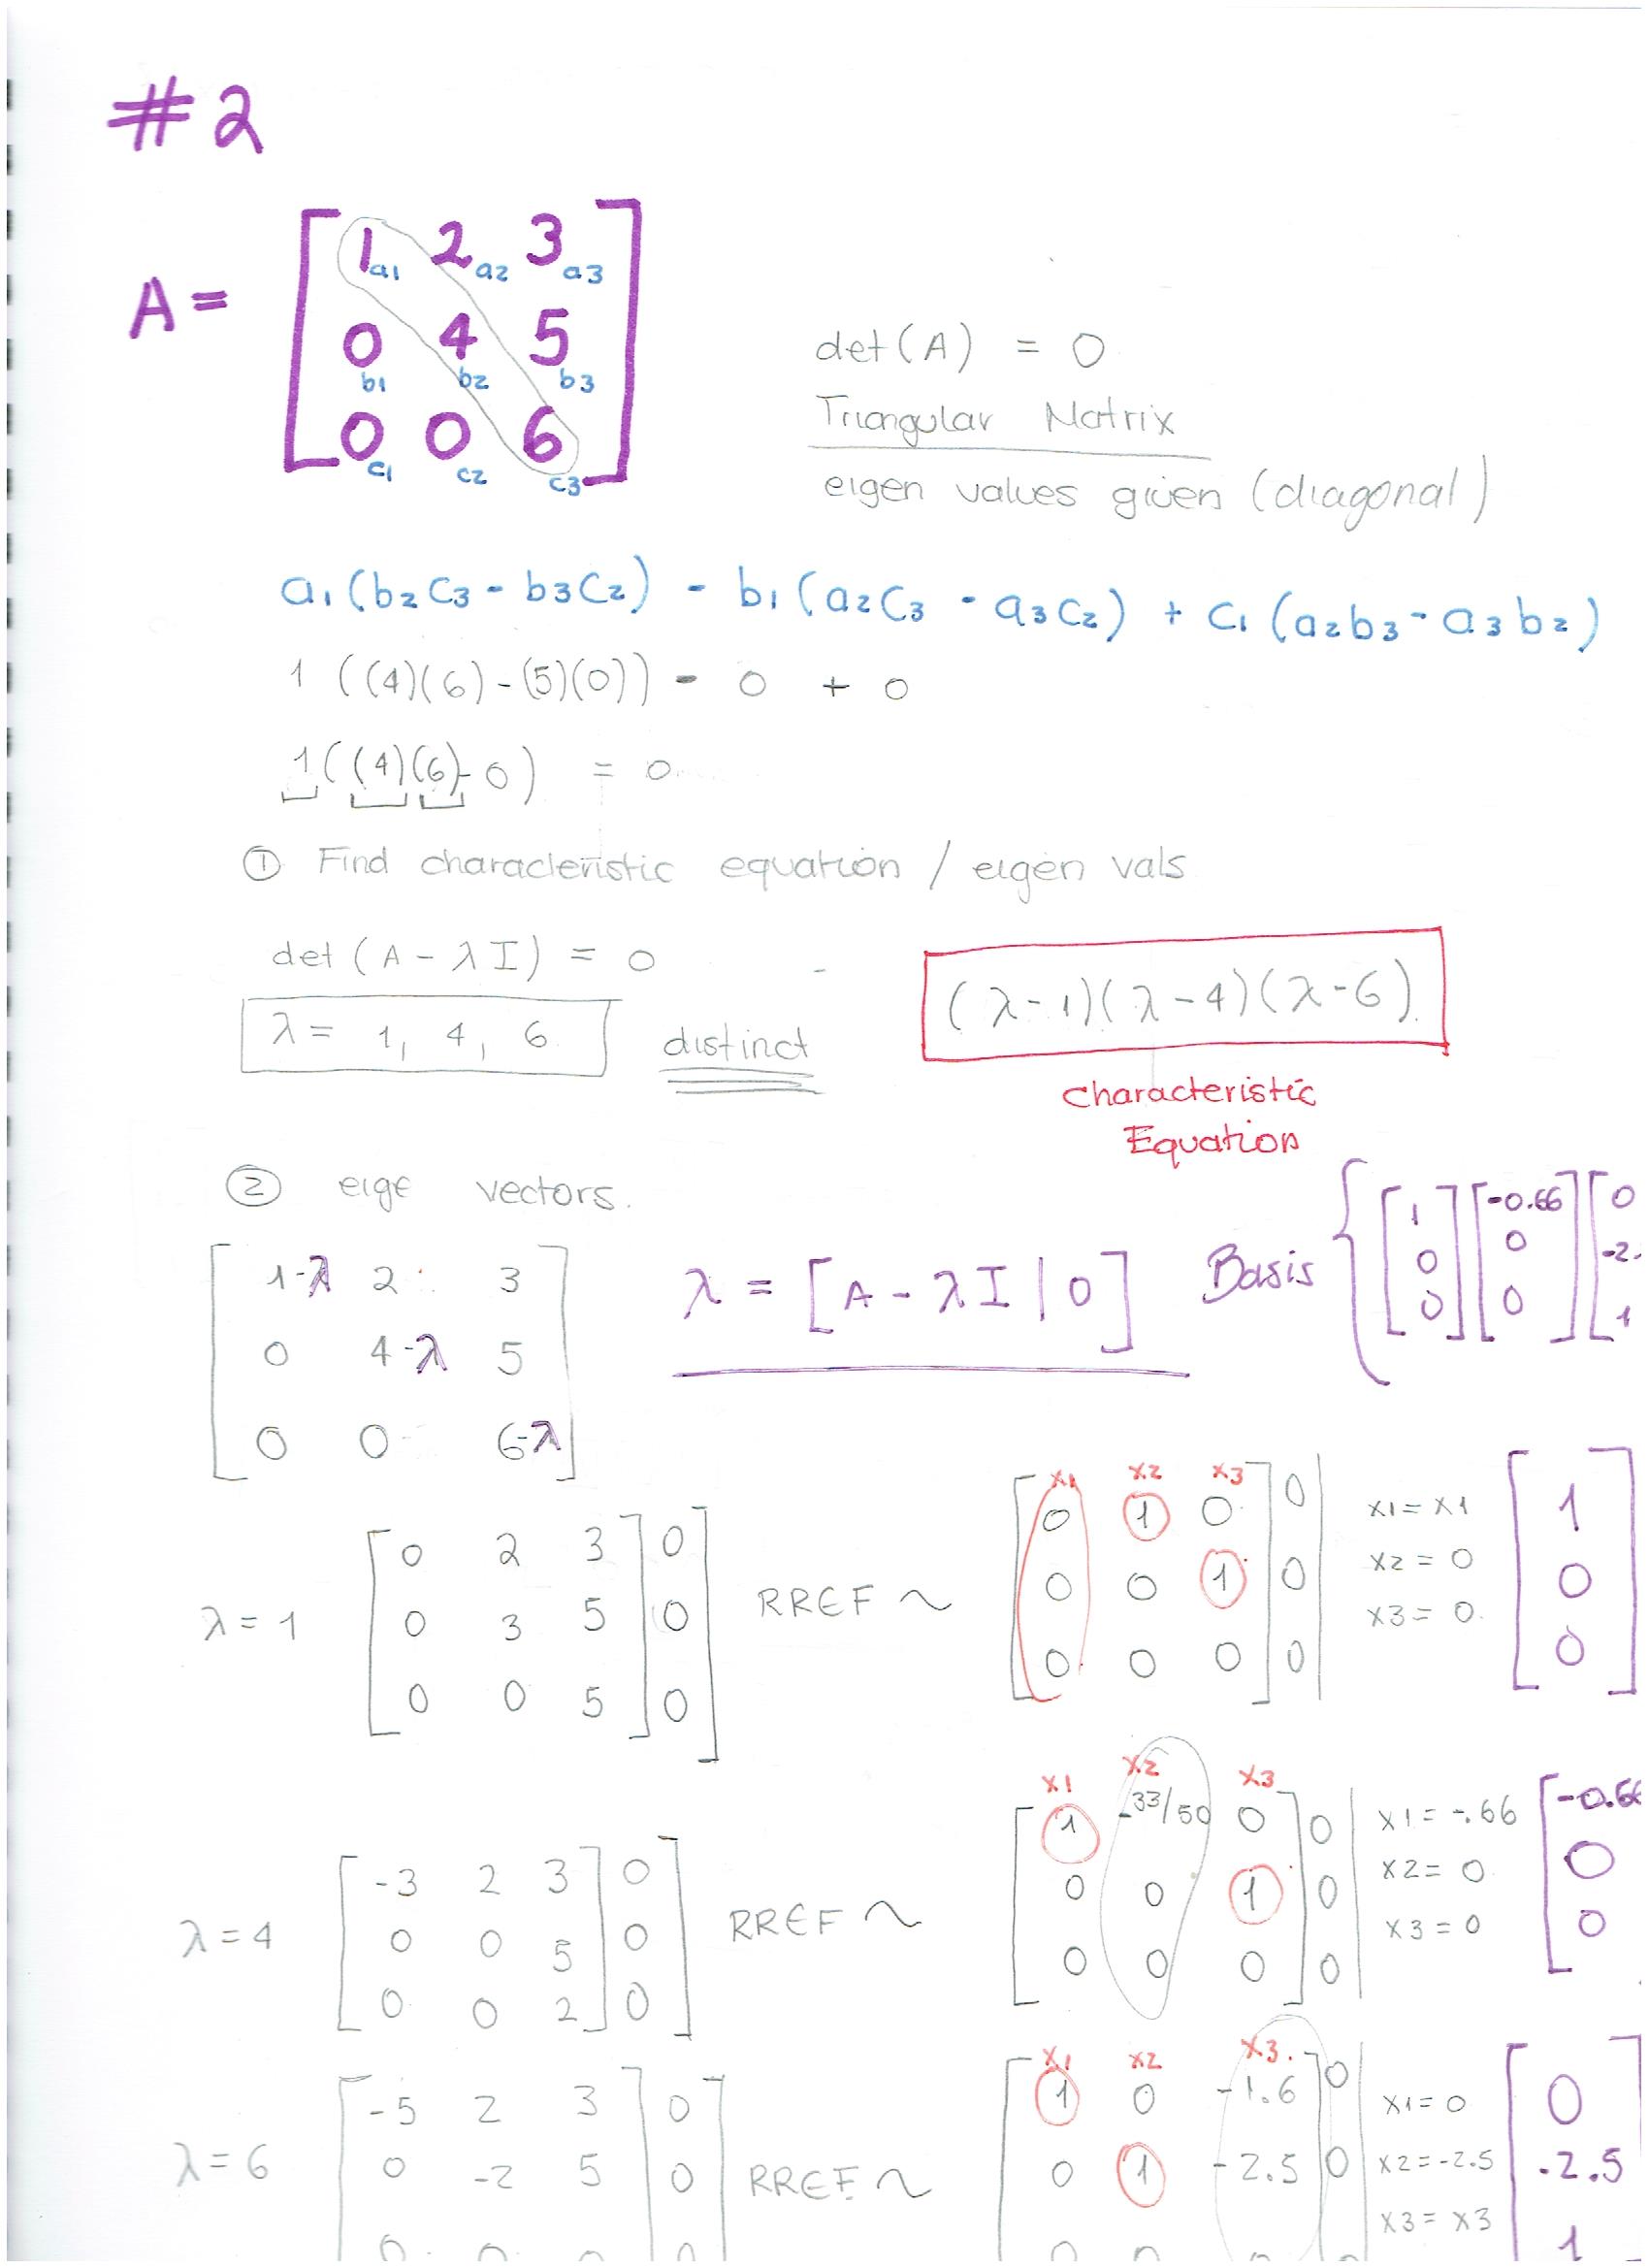 #2
A = [ 1 a1 2 a2 3 a3
0 b1 4 b2 5 b3
0 c1 0 c2 6 c3 ]
det(A) = 0
Triangular Matrix
eigen values given (diagonal)
a1(b2c3 - b3c2) - b1(a2c3 - a3c2) + c1(a2b3 - a3b2)
1 ((4)(6) - (5)(0)) - 0 + 0
1((4)(6) - 0) = 0
① Find characteristic equation / eigen vals
det(A - λI) = 0
λ = 1, 4, 6.
distinct
(λ-1)(λ-4)(λ-6)
Characteristic
Equation
② eige vectors.
[ 1-λ 2 3
0 4-λ 5
0 0 6-λ ]
λ = [A - λI | 0]
Basis { [ 1 0 0 ] [ -0.66 0 0 ] [ 0 -2. 1
λ = 1
[ 0 2 3 ] 0
0 3 5 | 0
0 0 5 ] 0 ]
RREF ~
x1 x2 x3
[ 0 1 0 ] 0
0 0 1 | 0
0 0 0 ] 0
x1 = x1
x2 = 0
x3 = 0.
[ 1
0
0 ]
λ = 4
[ -3 2 3 ] 0
0 0 5 | 0
0 0 2 ] 0 ]
RREF ~
x1 x2 x3
[ 1 -33/50 0 ] 0
0 0 1 | 0
0 0 0 ] 0
x1 = -.66
x2 = 0
x3 = 0
[ -0.66
0
0
λ = 6
[ -5 2 3 ] 0
0 -2 5 | 0
0 0 0 0
RREF ~
x1 x2 x3.
[ 1 0 -1.6 ] 0
0 1 -2.5 | 0
0 0 0 0
x1 = 0
x2 = -2.5
x3 = x3
[ 0
-2.5
1